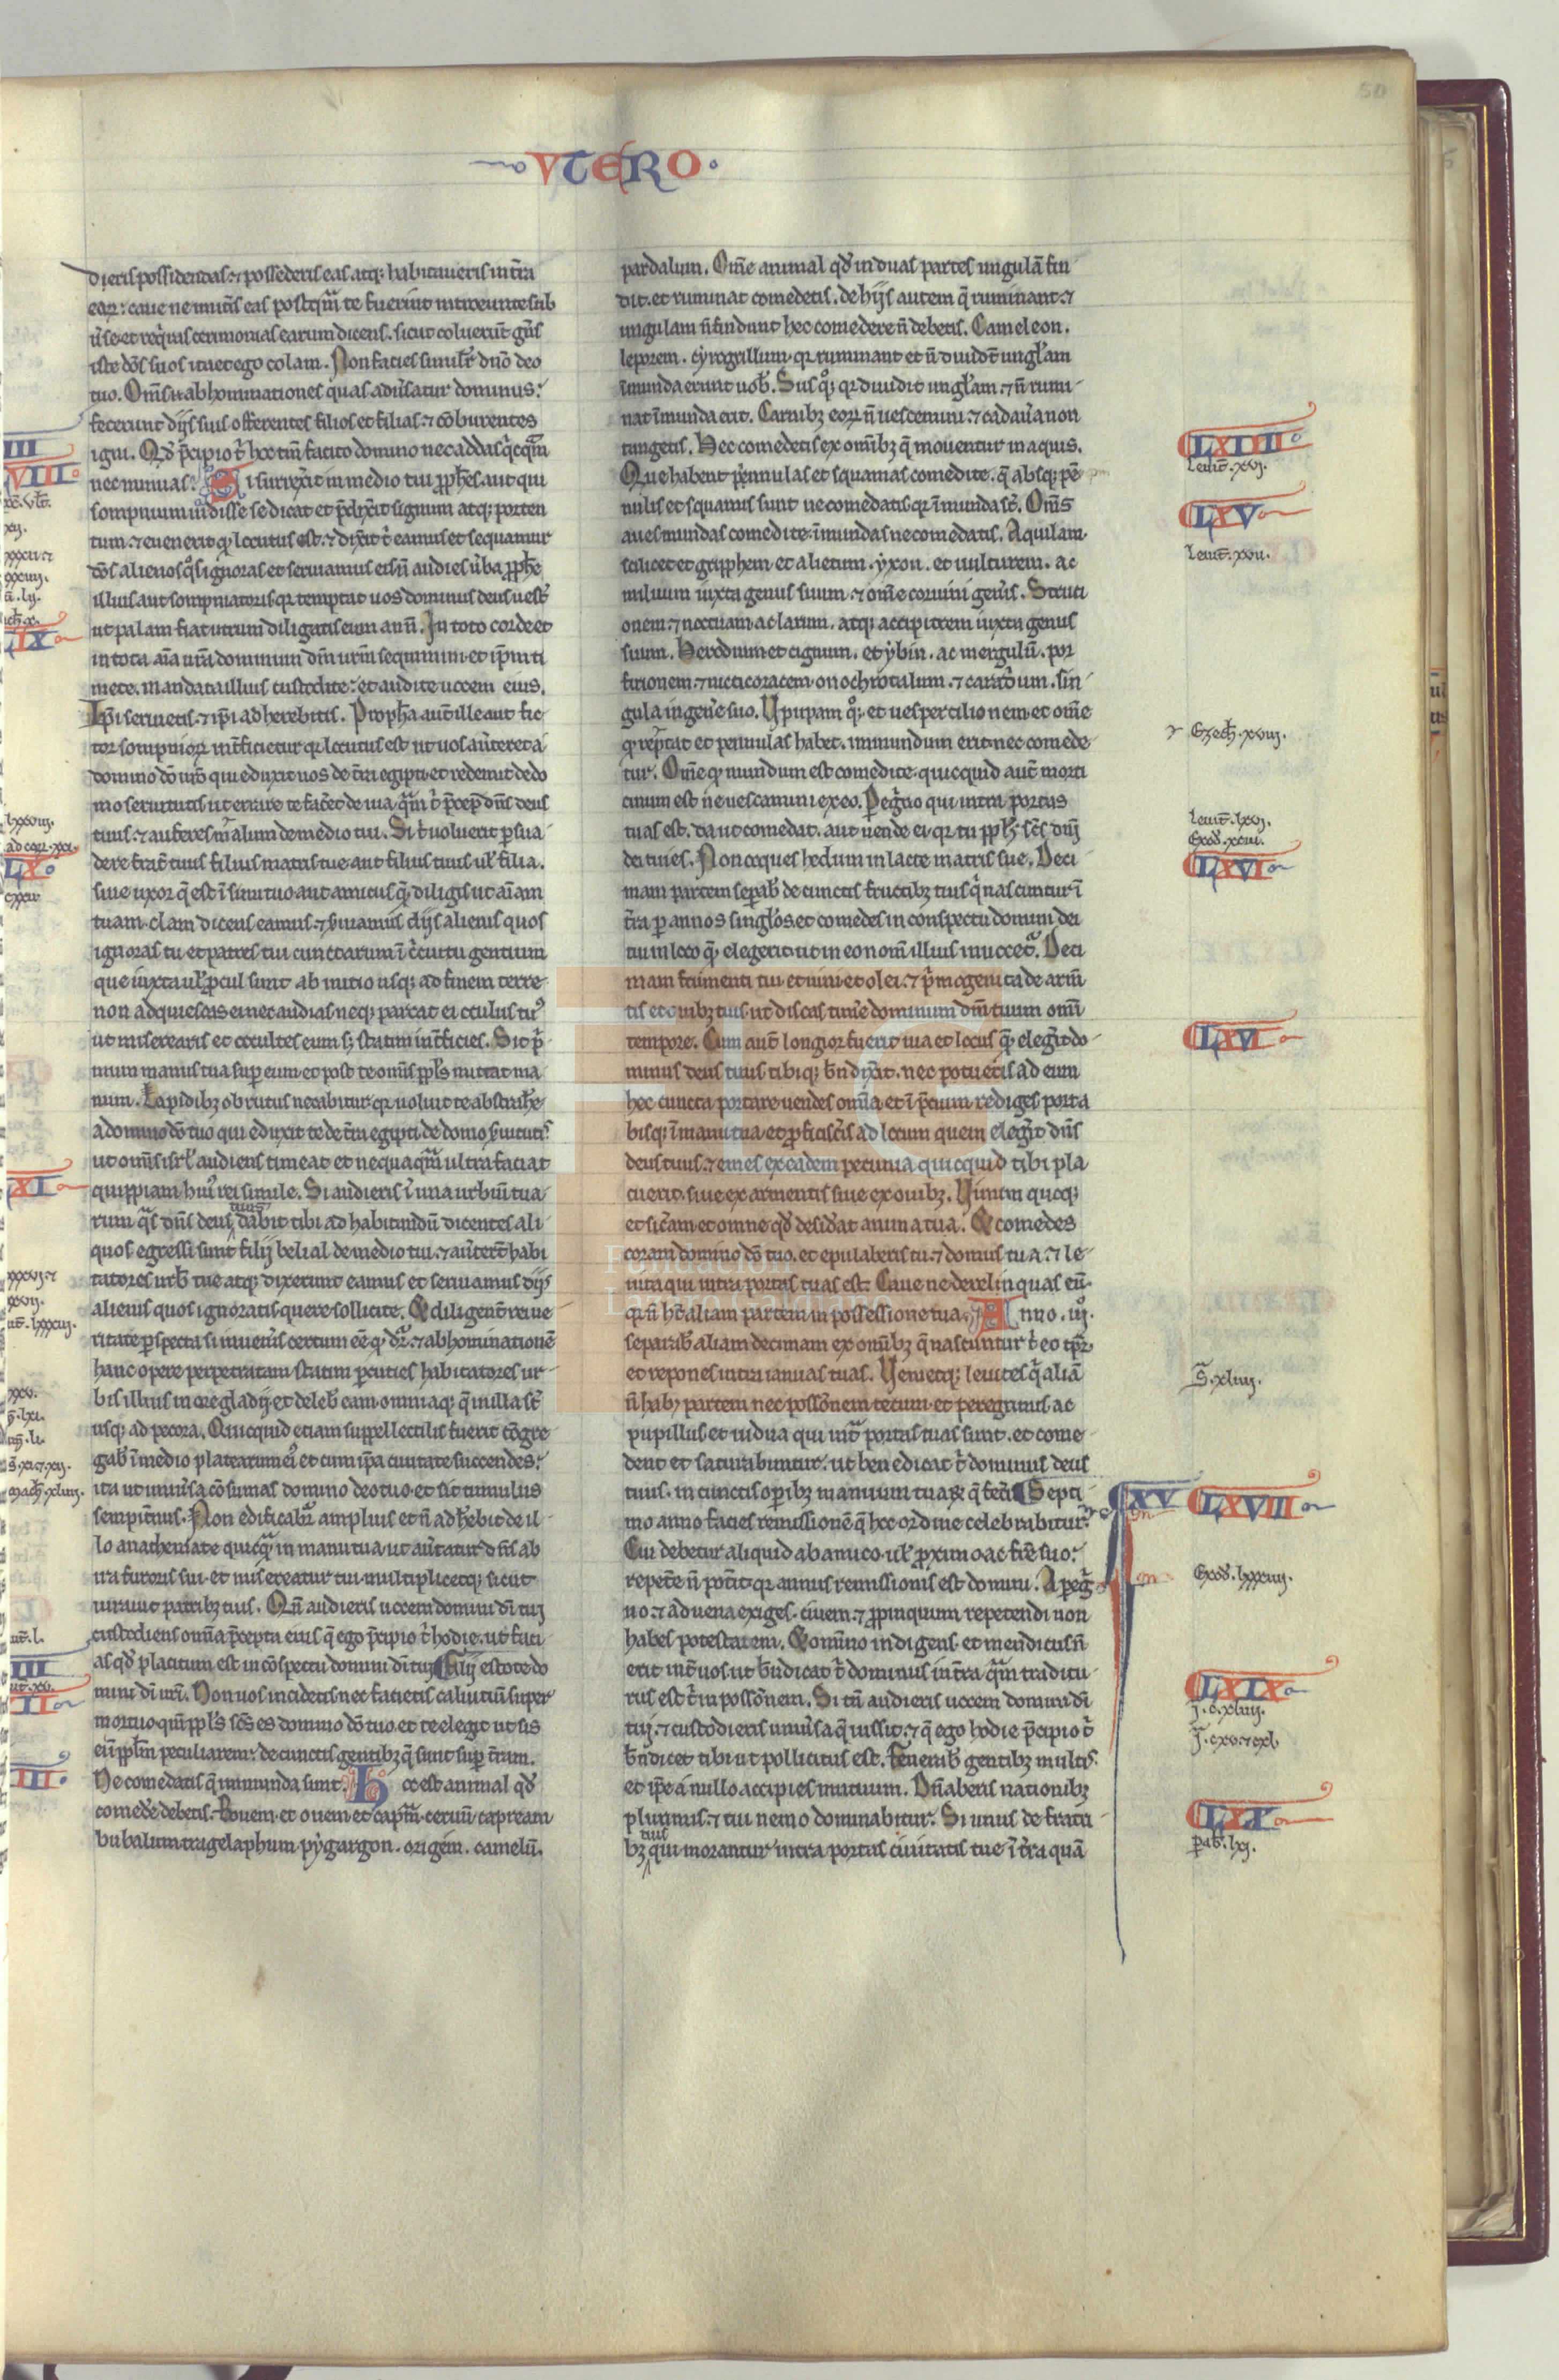 VTERO
50
dieris possidendas ⁊ possederis eas atq; habitaueris in t̄ra
eaꝝ: caue ne imit̄is eas postq̄m te fuerint introeunte sub
u̅se et req̇ras cerimonias earum dicens. sicut coluerūt gēs
iste dōs suos ita et ego colam. Non facies simil̄r dn̄o deo
tuo. Om̄s n̄ abhominationes quas adūsatur dominus:
fecerunt dijs suis offerentes filios et filias ⁊ cōburentes
igni. Qd̄ p̄cipio t̄ hoc tm̄ facito domino nec addas q̇cq̄m
nec minuas. Si surrexit in medio tui ꝓph̄es. aut qui
sompnium uidisse se dicat et p̄dixit signum atq; porten
tum. ⁊ euenerit q̄ locutus est. ⁊ dixit t̄ eamus et sequamur
dōs alienos q̊s ignoras et seruiamus eis n̄ audies ūba ꝓph̄e
illius aut sompniatoris qr temptat uos dominus deus uest̄
ut palam fiat utrum diligatis eum an n̄. In toto corde et
in tota aīa ur̄a dominum dm̄ urm̄ sequimini et ip̄m ti
mete. mandata illius custodite: et audite uocem eius.
Ip̄i seruietis. ⁊ ip̄i adherebitis. Propha aut̄ ille aut fic
tor sompnioꝝ int̄ficietur qr locutus est ut uos aūteret a
domino dō uro qui eduxit uos de t̄ra egipti et redemit de do
mo seruitutis ut errare te fac̄et de uia q̄m t̄ p̄cep̄ dn̄s deus
tuus. ⁊ auferes malum de medio tui. Si t̄ uoluerit ꝑsua
dere frat̄ tuus filius matris tue aut filius tuus ul̄ filia.
siue uxor q̄ est ī sinu tuo aut amicus q̄ diligis ut aīam
tuam. clam dicens eamus. ⁊ s̄uiamus dijs alienis quos
ignoras tu et patres tui cunctarum ī c̄cuitu gentium
que iuxta ul̄ ꝓcul sunt ab initio usq; ad finem terre
non adquiescas ei nec audias neq; parcat ei oculus tu᷒
ut miserearis et occultes eum s; statim int̄ficies. Sit p̄
mum manus tua suꝑ eum et post te om̄s ppl̄s mittat ma
num. Lapidibz obrutus necabitur qr uoluit te abstrah̄e
a domino dō tuo qui eduxit te de t̄ra egipti de domo s̄uitutis
ut om̄s isrl̄ audiens timeat et nequaq̄m ultra faciat
quippiam hui᷒ rei simile. Si audieris ī una urbiū tua
rum q̄s dn̄s deus tuus dabit tibi ad habitandū dicentes ali
quos egressi sunt filij belial de medio tui. ⁊ aūter̄t habi
tatores urb̄ tue atq; dixerunt eamus et seruiamus dijs
alienis quos ignoratis quere sollicite. Et diligent̄ rei ue
ritate ꝑspecta si inuen̄is certum eē q̄ dr̄. ⁊ abhominationē
hanc opere perpetratam statim ꝑcuties habitatores ur
bis illius in ore gladij. et deleb̄ eam. omniaq; q̄ in illa st̄
usq; ad pecora. Quicquid etiam suppellectilis fuerit cōgre
gab̄ ī medio platearum ei᷒ et cum ip̄a ciuitate succendes:
ita ut uniūsa cōsumas domino deo tuo. et sit tumulus
sempit̄nus. Non edificabit̄ amplius et n̄ adh̄ebit de il
lo anathemate quicq̄ in manu tua. ut aūtatur dn̄s ab
ira furoris sui. et misereatur tui. multiplicetq; sicut
iurauit patribz tuis. Qn̄ audieris uocem domini dī tui
custodiens om̄ia p̄cepta eius q̄ ego p̄cipio t̄ hodie. ut faci
as qd̄ placitum est in cōspectu domini dī tui. Filij estote do
mini dī uri. Non uos incidetis nec facietis caluitiū super
mortuo. qm̄ ppl̄s sc̄s es domino dō tuo. et te elegit ut sis
ei ī ppl̄m peculiarem: de cunctis gentibz q̄ sunt suꝑ t̄ram.
Ne comedatis q̄ immunda sunt. Hoc est animal qd̄
comed̄e debetis. Bouem. et ouem et capm̄. ceruū. capream
bubalum. tragelaphum. pygargon. origem. camelū.
pardalum. Om̄e animal qd̄ in duas partes ungulā fin
dit. et ruminat comedetis. de hijs autem q̄ ruminant. ⁊
ungulam n̄ findunt hec comedere n̄ debetis. Cameleon.
leporem. cyrogrillum. qr ruminant et n̄ diuidt̄ unglam
īmunda erunt uob̄. Sus q̊; qr diuidit unglam. ⁊ n̄ rumi
nat īmunda erit. Carnibz eoꝝ n̄ uescemini. ⁊ cadaūa non
tangetis. Hec comedetis ex om̄ibz q̄ mouentur in aquis.
Que habent pennulas et squamas comedite. q̄ absq; pē
nulis et squamis sunt ne comedatis qr īmunda st̄. Om̄s
aues mundas comedite. īmundas ne comedatis. Aquilam.
scilicet et gripphem et alietum. yxon. et uulturem. ac
miluum iuxta genus suum. ⁊ om̄e coruini geīs. Struti
onem. ⁊ noctuam. ac larum. atq; accipitrem iuxta genus
suum. Herodium et cignum. et ybin. ac mergulū. por
firionem. ⁊ nicticoracem. onochrotalum. ⁊ caradrium. sin
gula in geīe suo. Vpupam q̊; et uespertilionem. et om̄e
q̄ rept̄at et pennulas habet. immundum erit. nec comede
tur. Om̄e q̄ mundum est comedite. quicquid aut̄ morti
cinum est ne uescamini ex eo. Peḡno qui intra portas
tuas est. da ut comedat. aut uende ei. qr tu ppl̄s sc̄s dn̄i
dei tui es. Non coques hedum in lacte matris sue. Deci
mam partem separab̄ de cunctis fructibz tuis q̄ nascuntur ī
t̄ra ꝑ annos singlos. et comedes in conspectu domini dei
tui in loco q̄ elegerit. ut in eo nom̄ illius inuocet̄. Deci
mam frumenti tui et uini et olei. ⁊ p̄mogenita de arm̄
tis et ouibz tuis. ut discas time dominum dm̄ tuum omī
tempore. Cum aut̄ longior fuerit uia et locus q̄ eleḡit do
minus deus tuus. tibiq; bn̄dixit. nec potueris ad eum
hec cuncta portare uendes om̄ia. et ī p̄cium rediges porta
bisq; ī manu tua. et ꝓficisc̄is ad locum quem eleḡit dn̄s
deus tuus. ⁊ emes ex eadem pecunia quicquid tibi pla
cuerit. siue ex armentis siue ex ouibz. Vinum quoq;
et sic̄am et omne qd̄ desid̄at anima tua. Et comedes
coram domino dō tuo. et epulaberis tu. ⁊ domus tua. ⁊ le
uita qui intra portas tuas est. Caue ne derelinquas eū.
qr n̄ h̄t aliam partem in possessione tua. Anno. iij᷒.
separab̄ aliam decimam ex om̄ibz q̄ nascūntur t̄ eo tp̄r.
et repones intra ianuas tuas. Venietq; leuites q̄ aliā
n̄ hab; partem nec possōnem tecum. et peregrinus. ac
pupillus et uidua qui int̄ portas tuas sunt. et come
dent et saturabuntur. ut benedicat t̄ dominus deus
tuus. in cunctis oꝑibz manuum tuaꝝ q̄ fec̄is. Septi
mo anno facies remissionē q̄ hoc ordine celebrabitur.
Cui debetur aliquid ab amico. ul̄ ꝓximo ac fr̄e suo:
repet̄e n̄ pot̄it qr annus remissionis est domini. A peḡ
no. ⁊ aduena exiges. ciuem. ⁊ ꝓpinquum repetendi non
habes potestatem. Et omīno indigens et mendicus n̄
erit int̄ uos. ut bn̄dicat t̄ dominus in t̄ra q̄m traditu
rus est t̄ in possōnem. Si tn̄ audieris uocem domini dī
tui. ⁊ custodieris uniūsa q̄ iussit. ⁊ q̄ ego hodie p̄cipio t̄
bn̄dicet tibi ut pollicitus est. Fenerab̄ gentibz multis.
et ip̄e a nullo accipies mutuum. Dn̄aberis nationibz
plurimis. ⁊ tui nemo dominabitur. Si unus de fratri
bz tuis qui morantur intra portas ciuitatis tue ī t̄ra quā
LXIIII
leuit̄. xvj.
LXV
leuit̄. xvii.
Ezech̄. xviij.
leuit̄. lxxj.
LXVI
LXVI
XV LXVIII
Exod̄. lxxxiij.
LXIX
LXX